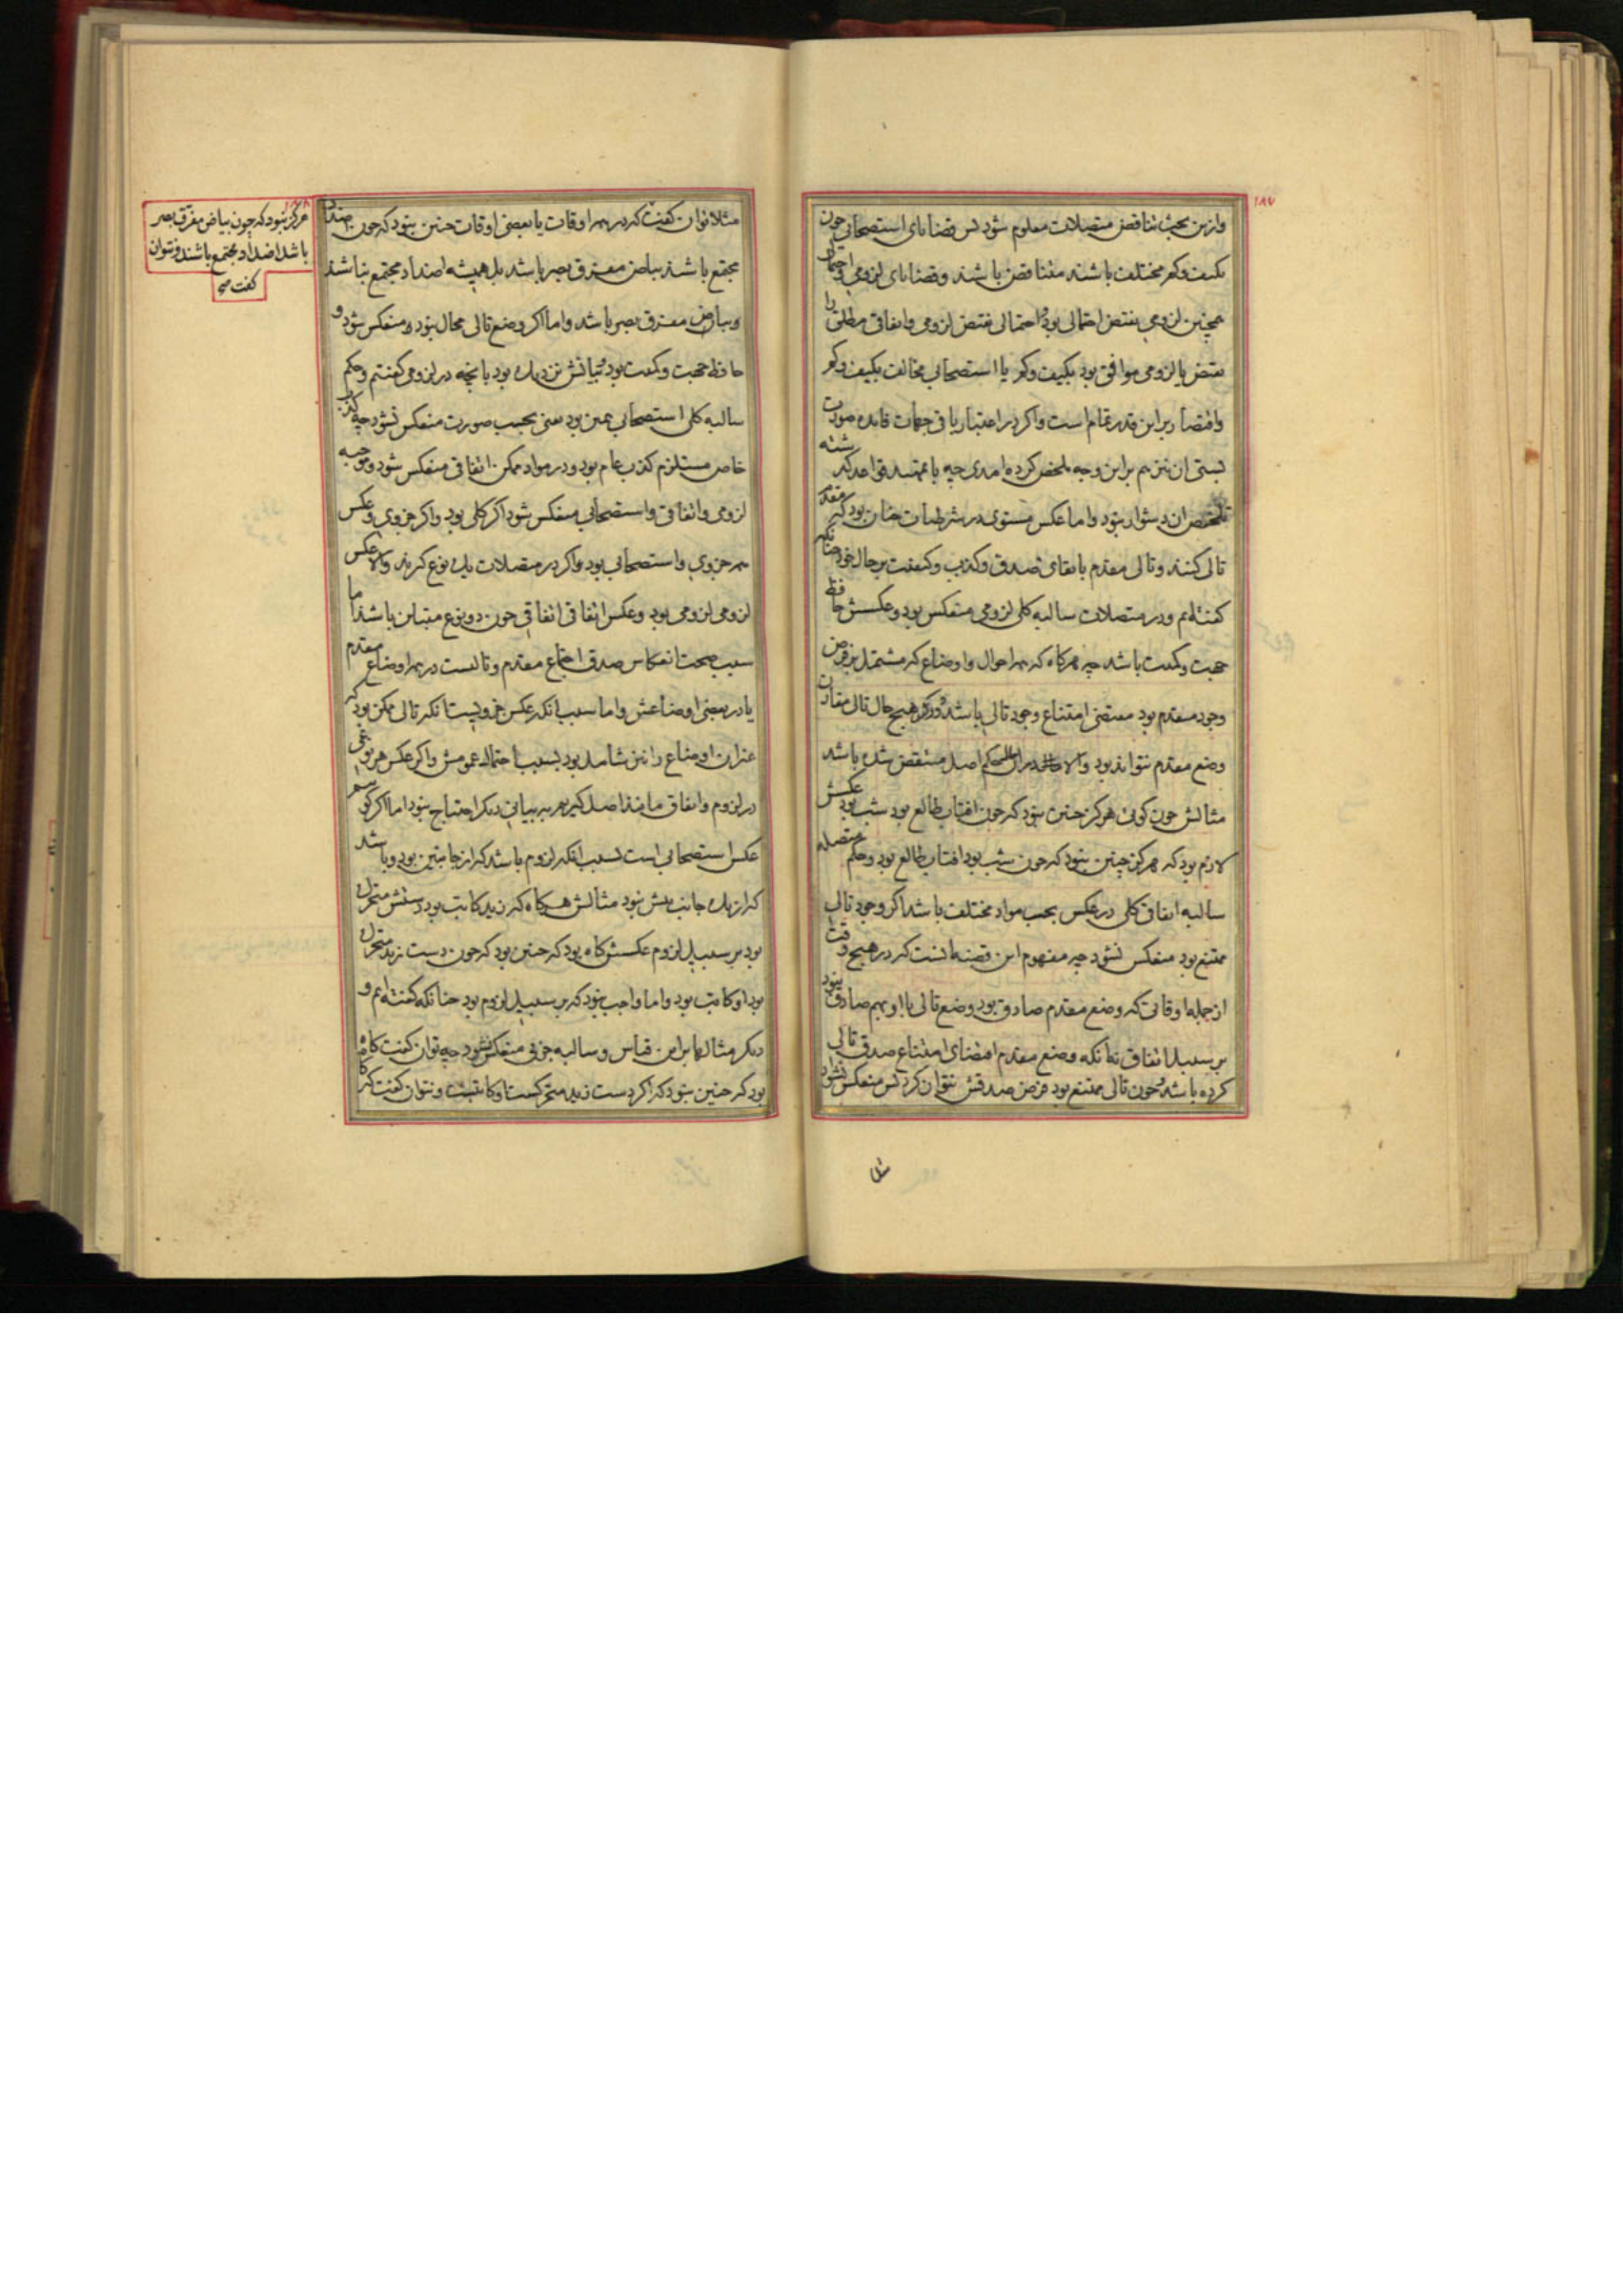 ۱۸۷
وازین بحث تناقض متصلات معلوم شود پس قضایای استصحابی چون
بکیف و کم مختلف باشند متناقض باشند و قضایای لزومی و احتمالی
همچنین لزومی نقیض احتمالی بود و احتمالی نقیض لزومی و اتفاقی مطلق را
نقیض یا لزومی موافق بود بکیف و کم یا استصحابی مخالف بکیف و کم
و اقتصار براین قدر تمام است و اگر در اعتبار باقی جهات فایده صورت
بستی آن نیز هم براین وجه ملخص کرده امدی چه با تمهید قواعد گذشته
تلخیص ان دشوار نبود و اما عکس مستوی در شرطیات چنان بود که مقدم
تالی کنند و تالی مقدم با بقای صدق و کذب و کیفیت بر حال خود چنانکه
گفته‌ایم و در متصلات سالبه کلی لزومی منعکس بود و عکسش حافظ
جهت و کمیت باشد چه هرگاه که همه احوال و اوضاع که مشتمل بر فرض
وجود مقدم بود مقتضی امتناع وجود تالی باشد و در هیچ حال تالی مقارن
وضع مقدم نتواند بود و الا حکم اصل منتقض شده باشد
مثالش چون گوئی هرگز چنین نبود که چون افتاب طالع بود شب بود عکسش
لازم بود که هرگز چنین نبود که چون شب بود افتاب طالع بود و حکم متصله
سالبه اتفاقی کلی در عکس بحسب مواد مختلف باشد اگر وجود تالی
ممتنع بود منعکس نشود چه مفهوم این قضیه انست که در هیچ وقت
از جمله اوقاتی که وضع مقدم صادق بود وضع تالی با او بهم صادق نبود
بر سبیل اتفاق نه انکه وضع مقدم اقتضای امتناع صدق تالی
کرده باشد و چون تالی ممتنع بود فرض صدقش نتوان کرد پس منعکس نشود
مثلا توان گفت که در همه اوقات یا بعضی اوقات چنین نبود که چون ضدان
مجتمع باشند بیاض مفرق بصر باشد بل همیشه اضداد مجتمع نباشند
و بیاض مفرق بصر باشد و اما اگر وضع تالی محال نبود منعکس شود و
حافظ جهت و کمیت بود و بیانش نزدیک بود بانچه در لزومی گفتیم و حکم
سالبه کلی استصحابی همین بود یعنی بحسب صورت منعکس نشود چه کذب
خاص مستلزم کذب عام بود و در مواد ممکن اتفاقی منعکس شود و موجبه
لزومی و اتفاقی و استصحابی منعکس شود اگر کلی بود و اگر جزوی و عکس
همه جزوی و استصحابی بود و اگر در متصلات یک نوع گیرند والا عکس
لزومی لزومی بود و عکس اتفاقی اتفاقی چون دو نوع متباین باشند اما
سبب صحت انعکاس صدق اجتماع مقدم و تالیست در همه اوضاع مقدم
یا در بعضی اوضاعش و اما سبب انکه عکس جزویست انکه تالی ممکن بود که
غیر ان اوضاع را نیز شامل بود بسبب احتمال عمومش و اگر عکس هر نوعی
در لزوم و اتفاق مانند اصل گیریم به بیانی دیگر احتیاج نبود اما اگر گوئیم
عکس استصحابی است بسبب انکه لزوم باشد که از جانبین بود و باشد
که از یک جانب بیش نبود مثالش هرگاه که زید کاتب بود دستش متحرک
بود بر سبیل لزوم عکسش گاه بود که چنین بود که چون دست زید متحرک
بود او کاتب بود و اما واجب نبود که بر سبیل لزوم بود چنانکه گفته‌ایم و
دیگر مثالها براین قیاس و سالبه جزئی منعکس نشود چه توان گفت گاه
بود که چنین نبود که اگر دست زید متحرکست او کاتبست و نتوان گفت که گاه
۱۸۸
هرگز نبود که چون بیاض مفرق بصر
باشد اضداد مجتمع باشند و نتوان
گفت صح